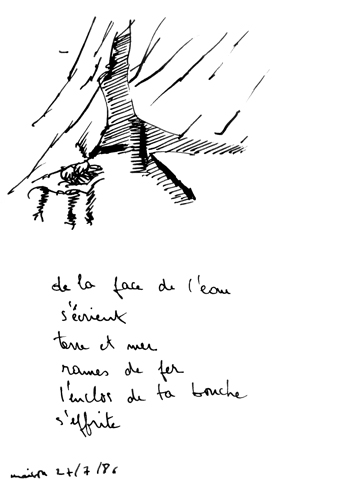 de la face de l'eau
s'écrient
terre et mer
rames de fer
l'enclos de ta bouche
s'effrite
27/7/86